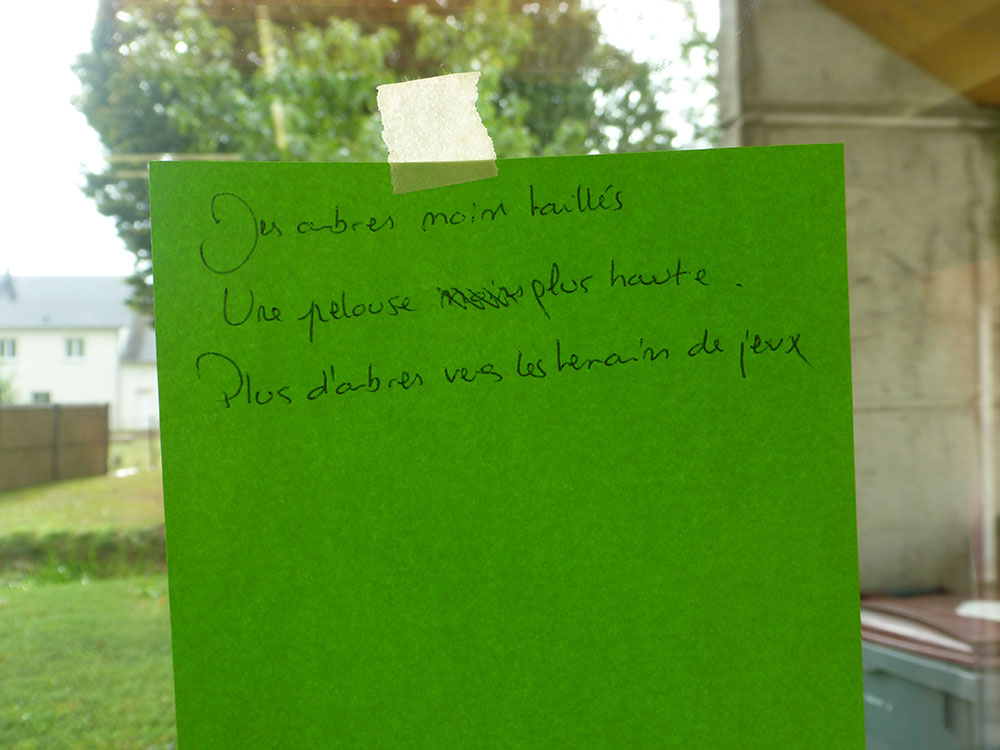 Des arbres moin taillés
Une pelouse plus haute.
Plus d'arbres vers les terrain de jeux